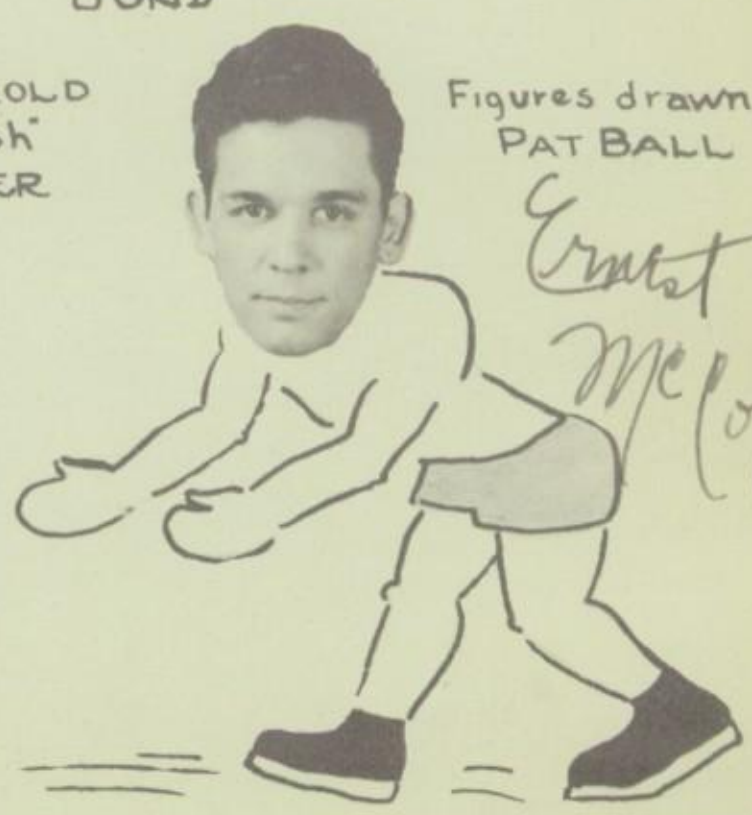 BOND
OLD
sh"
ER
Figures drawn
PAT BALL
Ernest
McCo